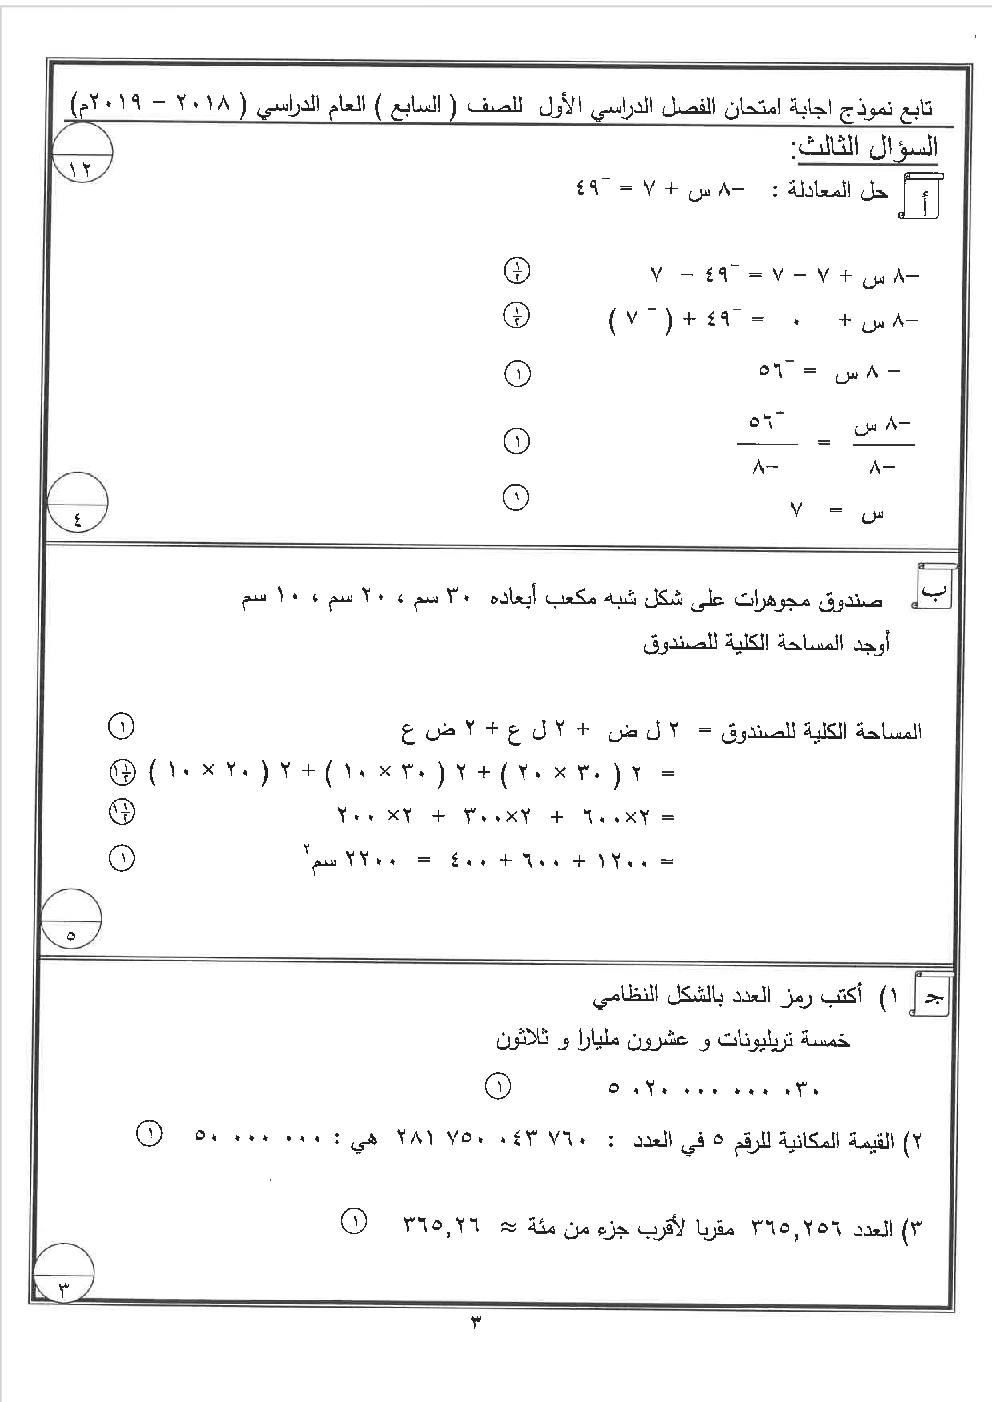 تابع نموذج اجابة امتحان الفصل الدراسي الأول للصف ( السابع ) العام الدراسي ( ٢٠١٨ – ٢٠١٩م)
السؤال الثالث:
١٢
أ
حل المعادلة : –٨ س + ٧ = ⁻٤٩
–٨ س + ٧ – ٧ = ⁻٤٩ – ٧ ½
–٨ س + ٠ = ⁻٤٩ + ( ⁻٧ ) ½
– ٨ س = ⁻٥٦ ١
–٨ س / –٨ = ⁻٥٦ / –٨ ١
س = ٧ ١
٤
ب
صندوق مجوهرات على شكل شبه مكعب أبعاده ٣٠ سم ، ٢٠ سم ، ١٠ سم
أوجد المساحة الكلية للصندوق
المساحة الكلية للصندوق = ٢ ل ض + ٢ ل ع + ٢ ض ع ١
= ٢ ( ٣٠ × ٢٠ ) + ٢ ( ٣٠ × ١٠ ) + ٢ ( ٢٠ × ١٠ ) ١½
= ٢×٦٠٠ + ٢×٣٠٠ + ٢× ٢٠٠ ١½
= ١٢٠٠ + ٦٠٠ + ٤٠٠ = ٢٢٠٠ سم٢ ١
٥
جـ
١) أكتب رمز العدد بالشكل النظامي
خمسة تريليونات و عشرون مليارا و ثلاثون
٥ ٠٢٠ ٠٠٠ ٠٠٠ ٠٣٠ ١
٢) القيمة المكانية للرقم ٥ في العدد : ٢٨١ ٧٥٠ ٠٤٣ ٧٦٠ هي : ٥٠ ٠٠٠ ٠٠٠ ١
٣) العدد ٣٦٥,٢٥٦ مقربا لأقرب جزء من مئة ≈ ٣٦٥,٢٦ ١
٣
٣